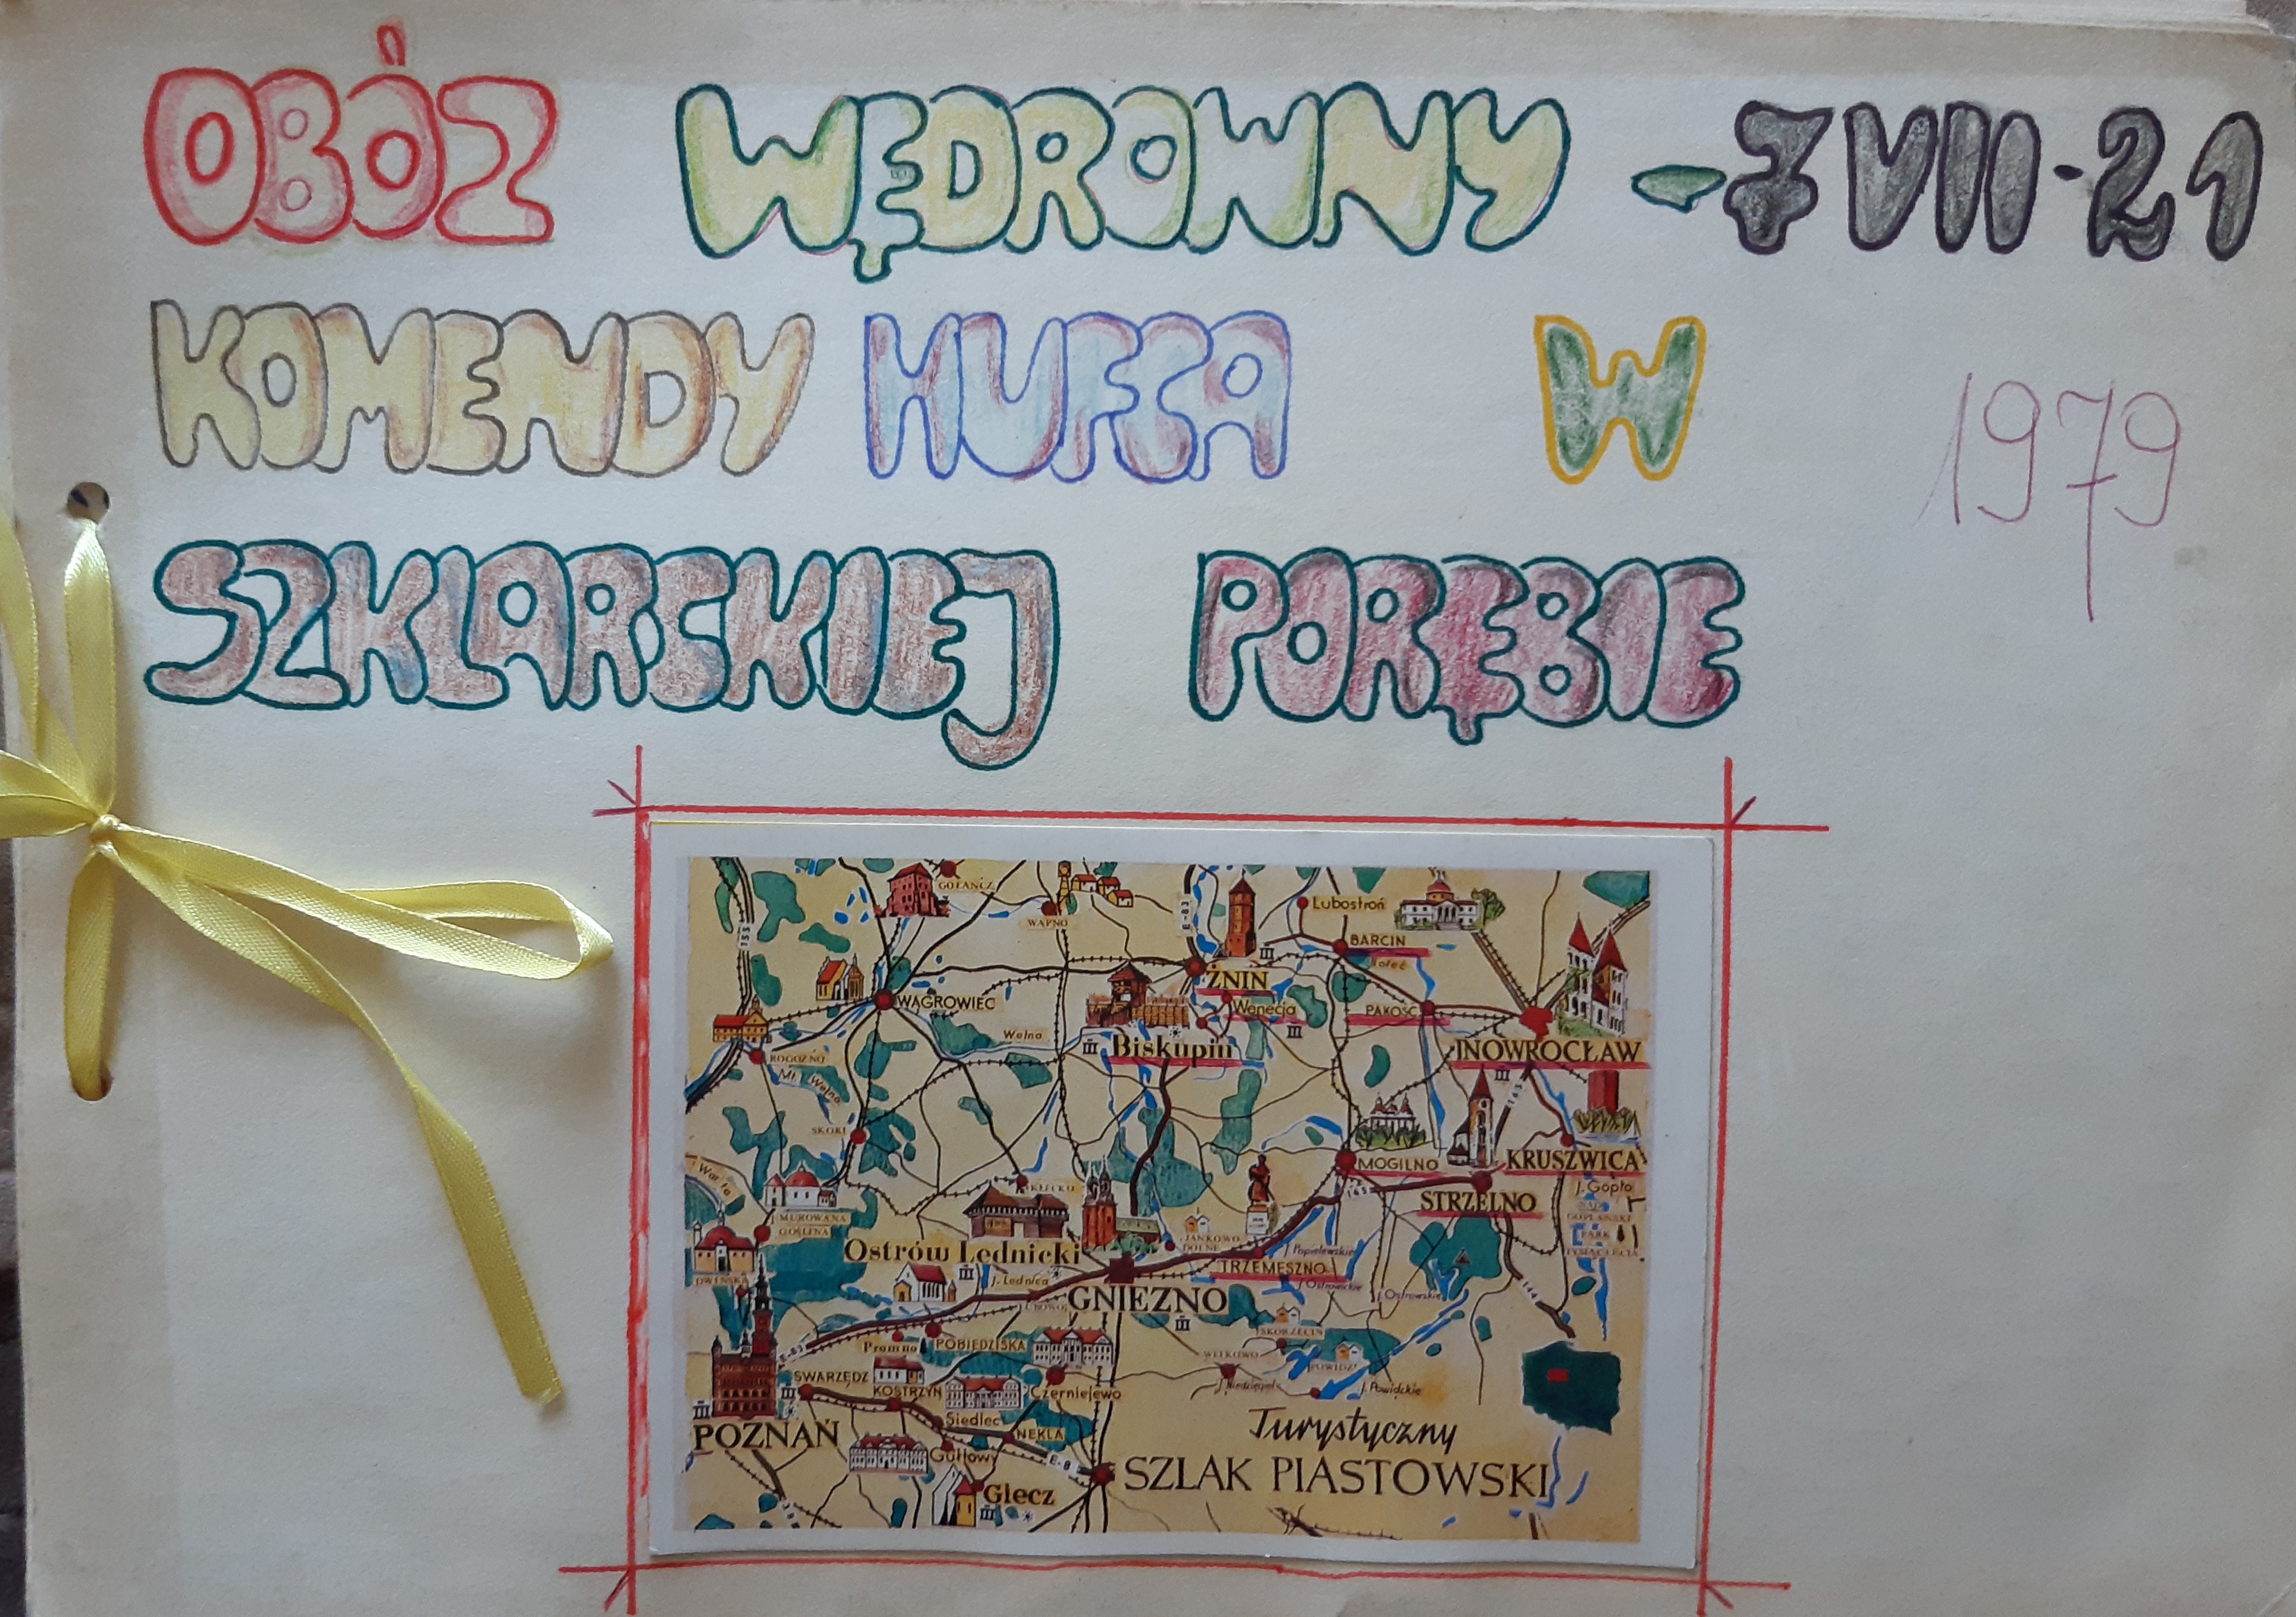 OBÓZ WĘDROWNY - 7 VII - 21
KOMENDY HUFCA W
1979
SZKLARSKIEJ PORĘBIE
GOŁAŃCZ
WAPNO
E-83
Lubostroń
BARCIN
ŻNIN
WĄGROWIEC
Wenecja
PAKOŚĆ
Wełna
Biskupin
INOWROCŁAW
ROGOŹNO
Mł. Wełna
SKOKI
145
Warta
KŁECKO
MOGILNO
KRUSZWICA
J. Gopło
145
STRZELNO
MUROWANA
GOŚLINA
JANKOWO
DOLNE
PARK
TYSIĄCLECIA
Ostrów Lednicki
J. Popielewskie
OWIŃSKA
J. Lednica
TRZEMESZNO
J. Ostrowickie
GNIEZNO
J. Ostrowskie
144
SKORZĘCIN
E-83
Promno
POBIEDZISKA
WITKOWO
POWIDZ
SWARZĘDZ
KOSTRZYN
Czerniejewo
J. Niedzięgiel
J. Powidzkie
Siedlec
Turystyczny
POZNAŃ
NEKLA
Gułtowy
E-8
SZLAK PIASTOWSKI
Giecz